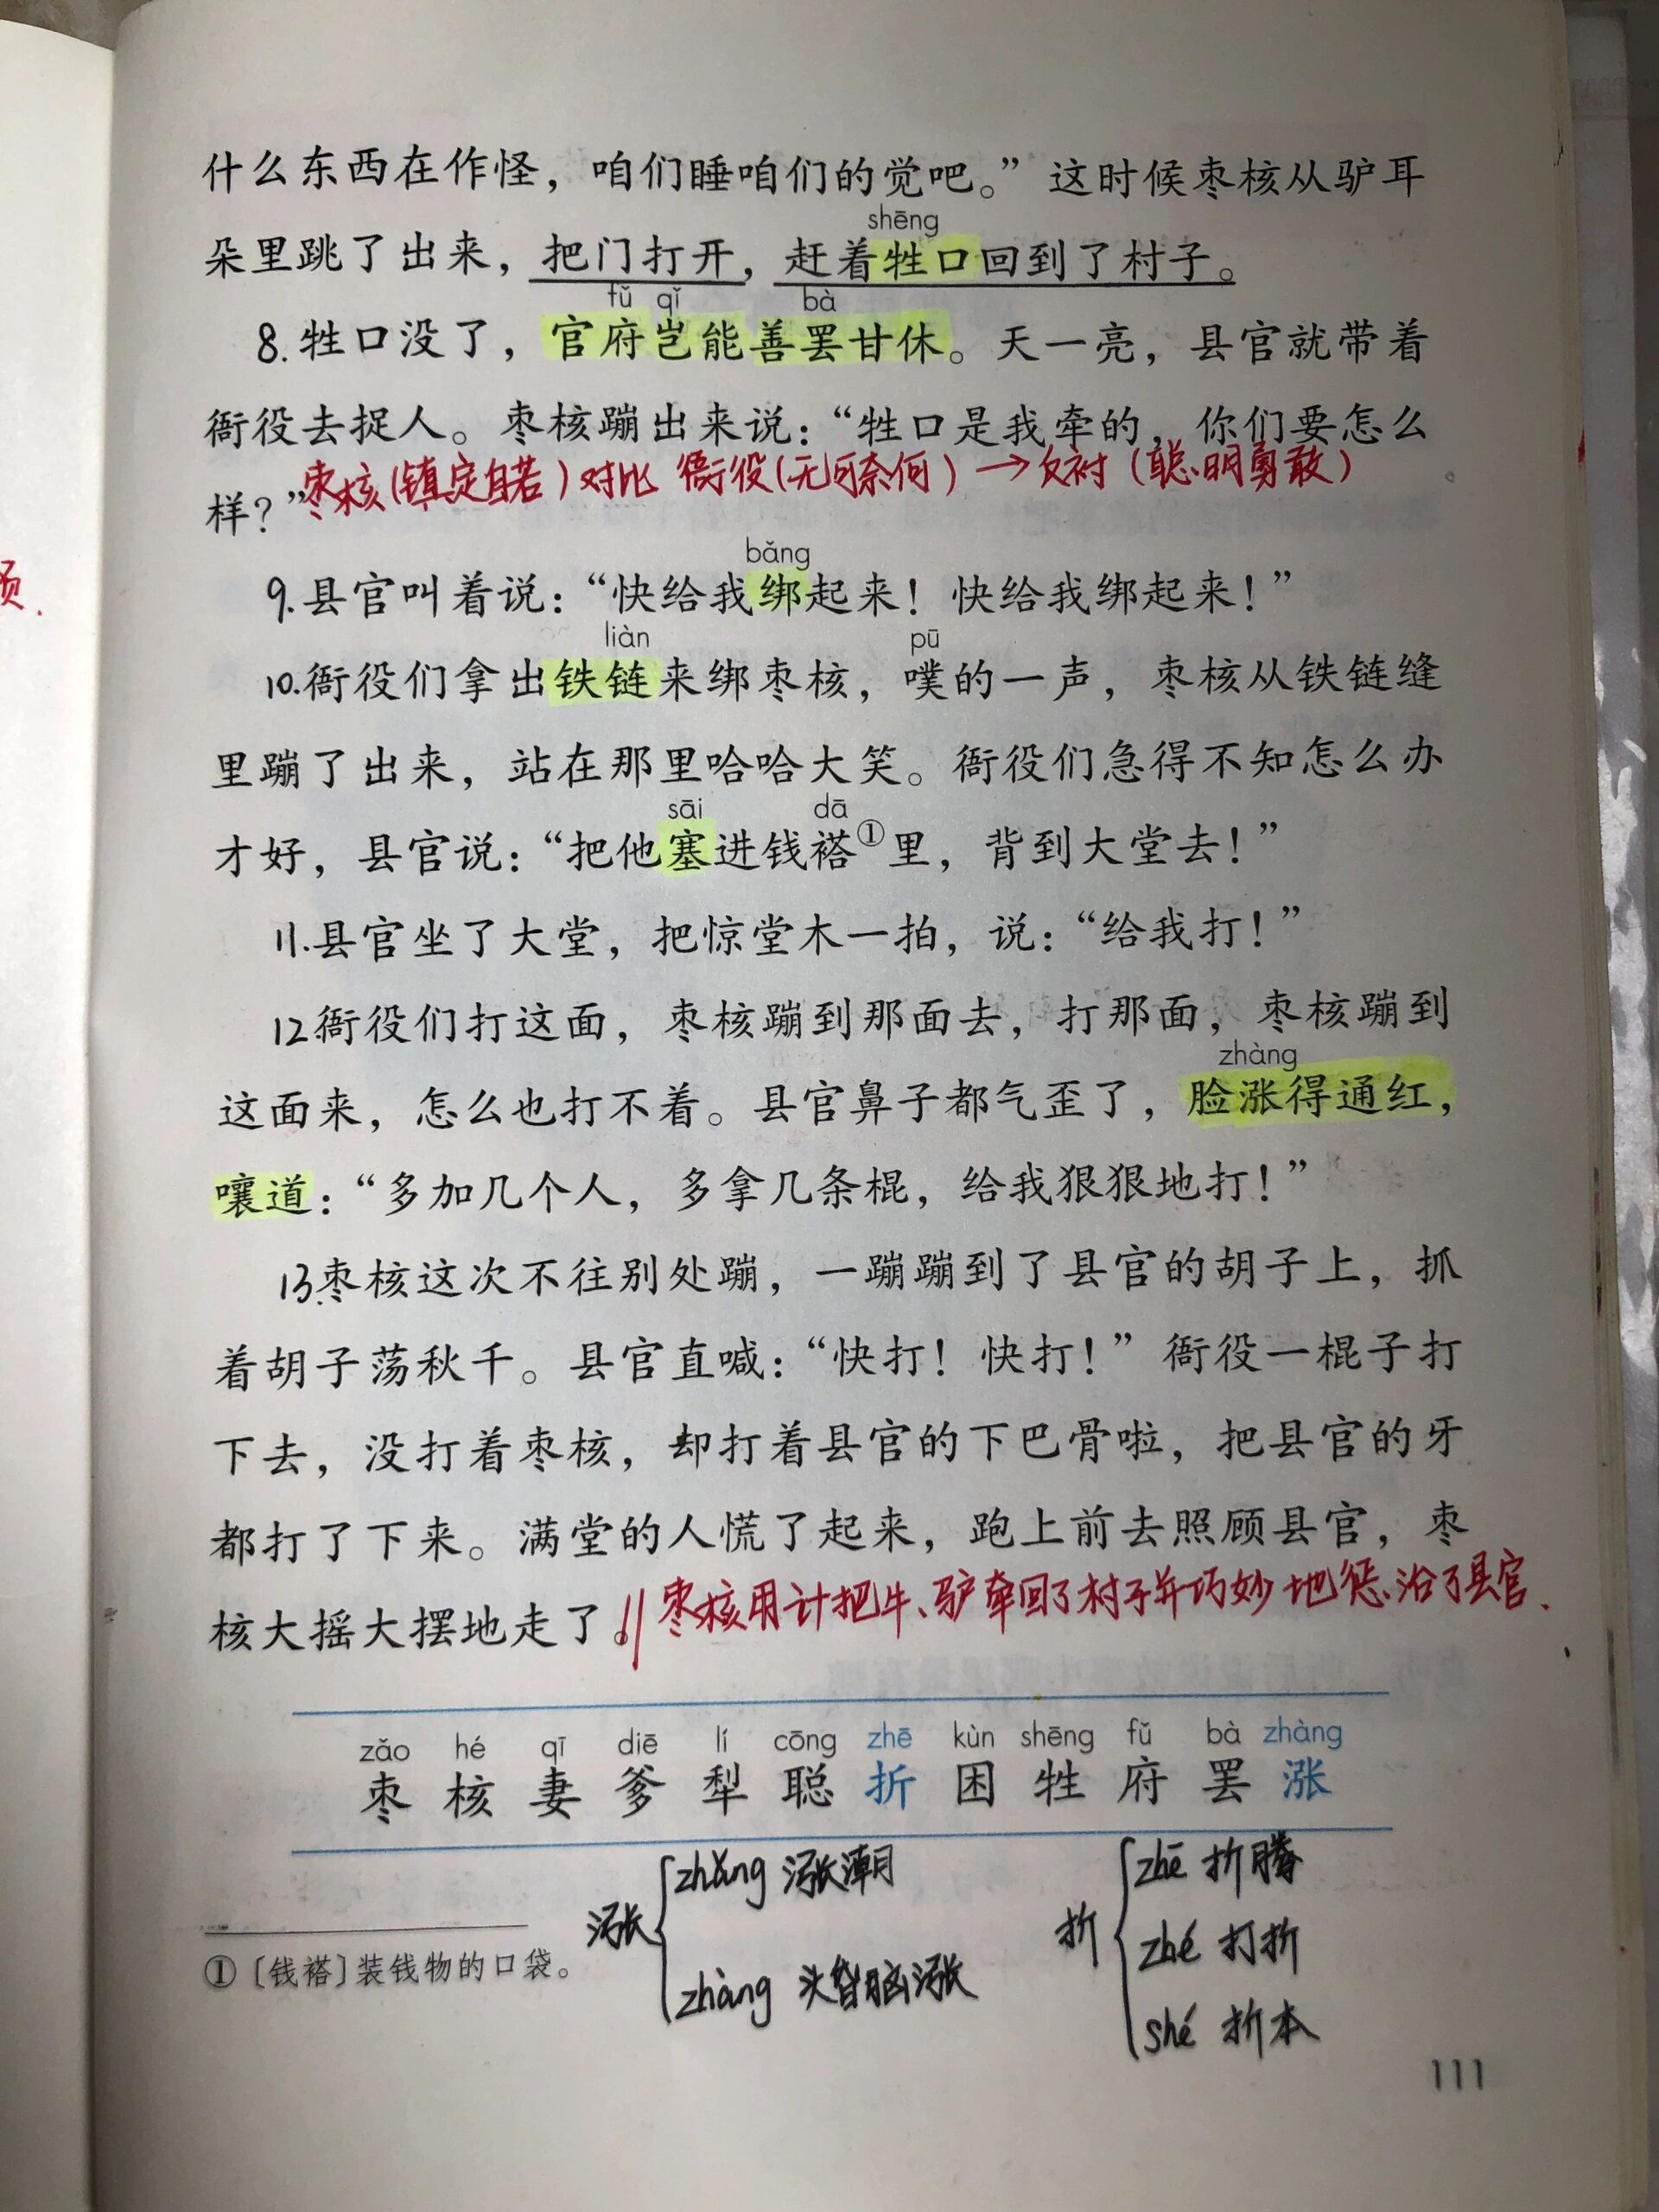 什么东西在作怪，咱们睡咱们的觉吧。”这时候枣核从驴耳
shēng
朵里跳了出来，把门打开，赶着牲口回到了村子。
fǔ qǐ bà
8.牲口没了，官府岂能善罢甘休。天一亮，县官就带着
衙役去捉人。枣核蹦出来说：“牲口是我牵的，你们要怎么
枣核（镇定自若）对比 衙役（无可奈何）→反衬（聪明勇敢）
样？”
须.
bǎng
9.县官叫着说：“快给我绑起来！快给我绑起来！”
liàn pū
10.衙役们拿出铁链来绑枣核，噗的一声，枣核从铁链缝
里蹦了出来，站在那里哈哈大笑。衙役们急得不知怎么办
sāi dā
才好，县官说：“把他塞进钱褡①里，背到大堂去！”
11.县官坐了大堂，把惊堂木一拍，说：“给我打！”
12.衙役们打这面，枣核蹦到那面去，打那面，枣核蹦到
zhàng
这面来，怎么也打不着。县官鼻子都气歪了，脸涨得通红，
嚷道：“多加几个人，多拿几条棍，给我狠狠地打！”
13.枣核这次不往别处蹦，一蹦蹦到了县官的胡子上，抓
着胡子荡秋千。县官直喊：“快打！快打！”衙役一棍子打
下去，没打着枣核，却打着县官的下巴骨啦，把县官的牙
都打了下来。满堂的人慌了起来，跑上前去照顾县官，枣
核大摇大摆地走了。// 枣核用计把牛、驴牵回了村子并巧妙地惩治了县官.
zǎo hé qī diē lí cōng zhē kùn shēng fǔ bà zhàng
枣 核 妻 爹 犁 聪 折 困 牲 府 罢 涨
涨
zhǎng 涨潮
zhàng 头昏脑涨
折
zhē 折腾
zhé 打折
shé 折本
①〔钱褡〕装钱物的口袋。
111